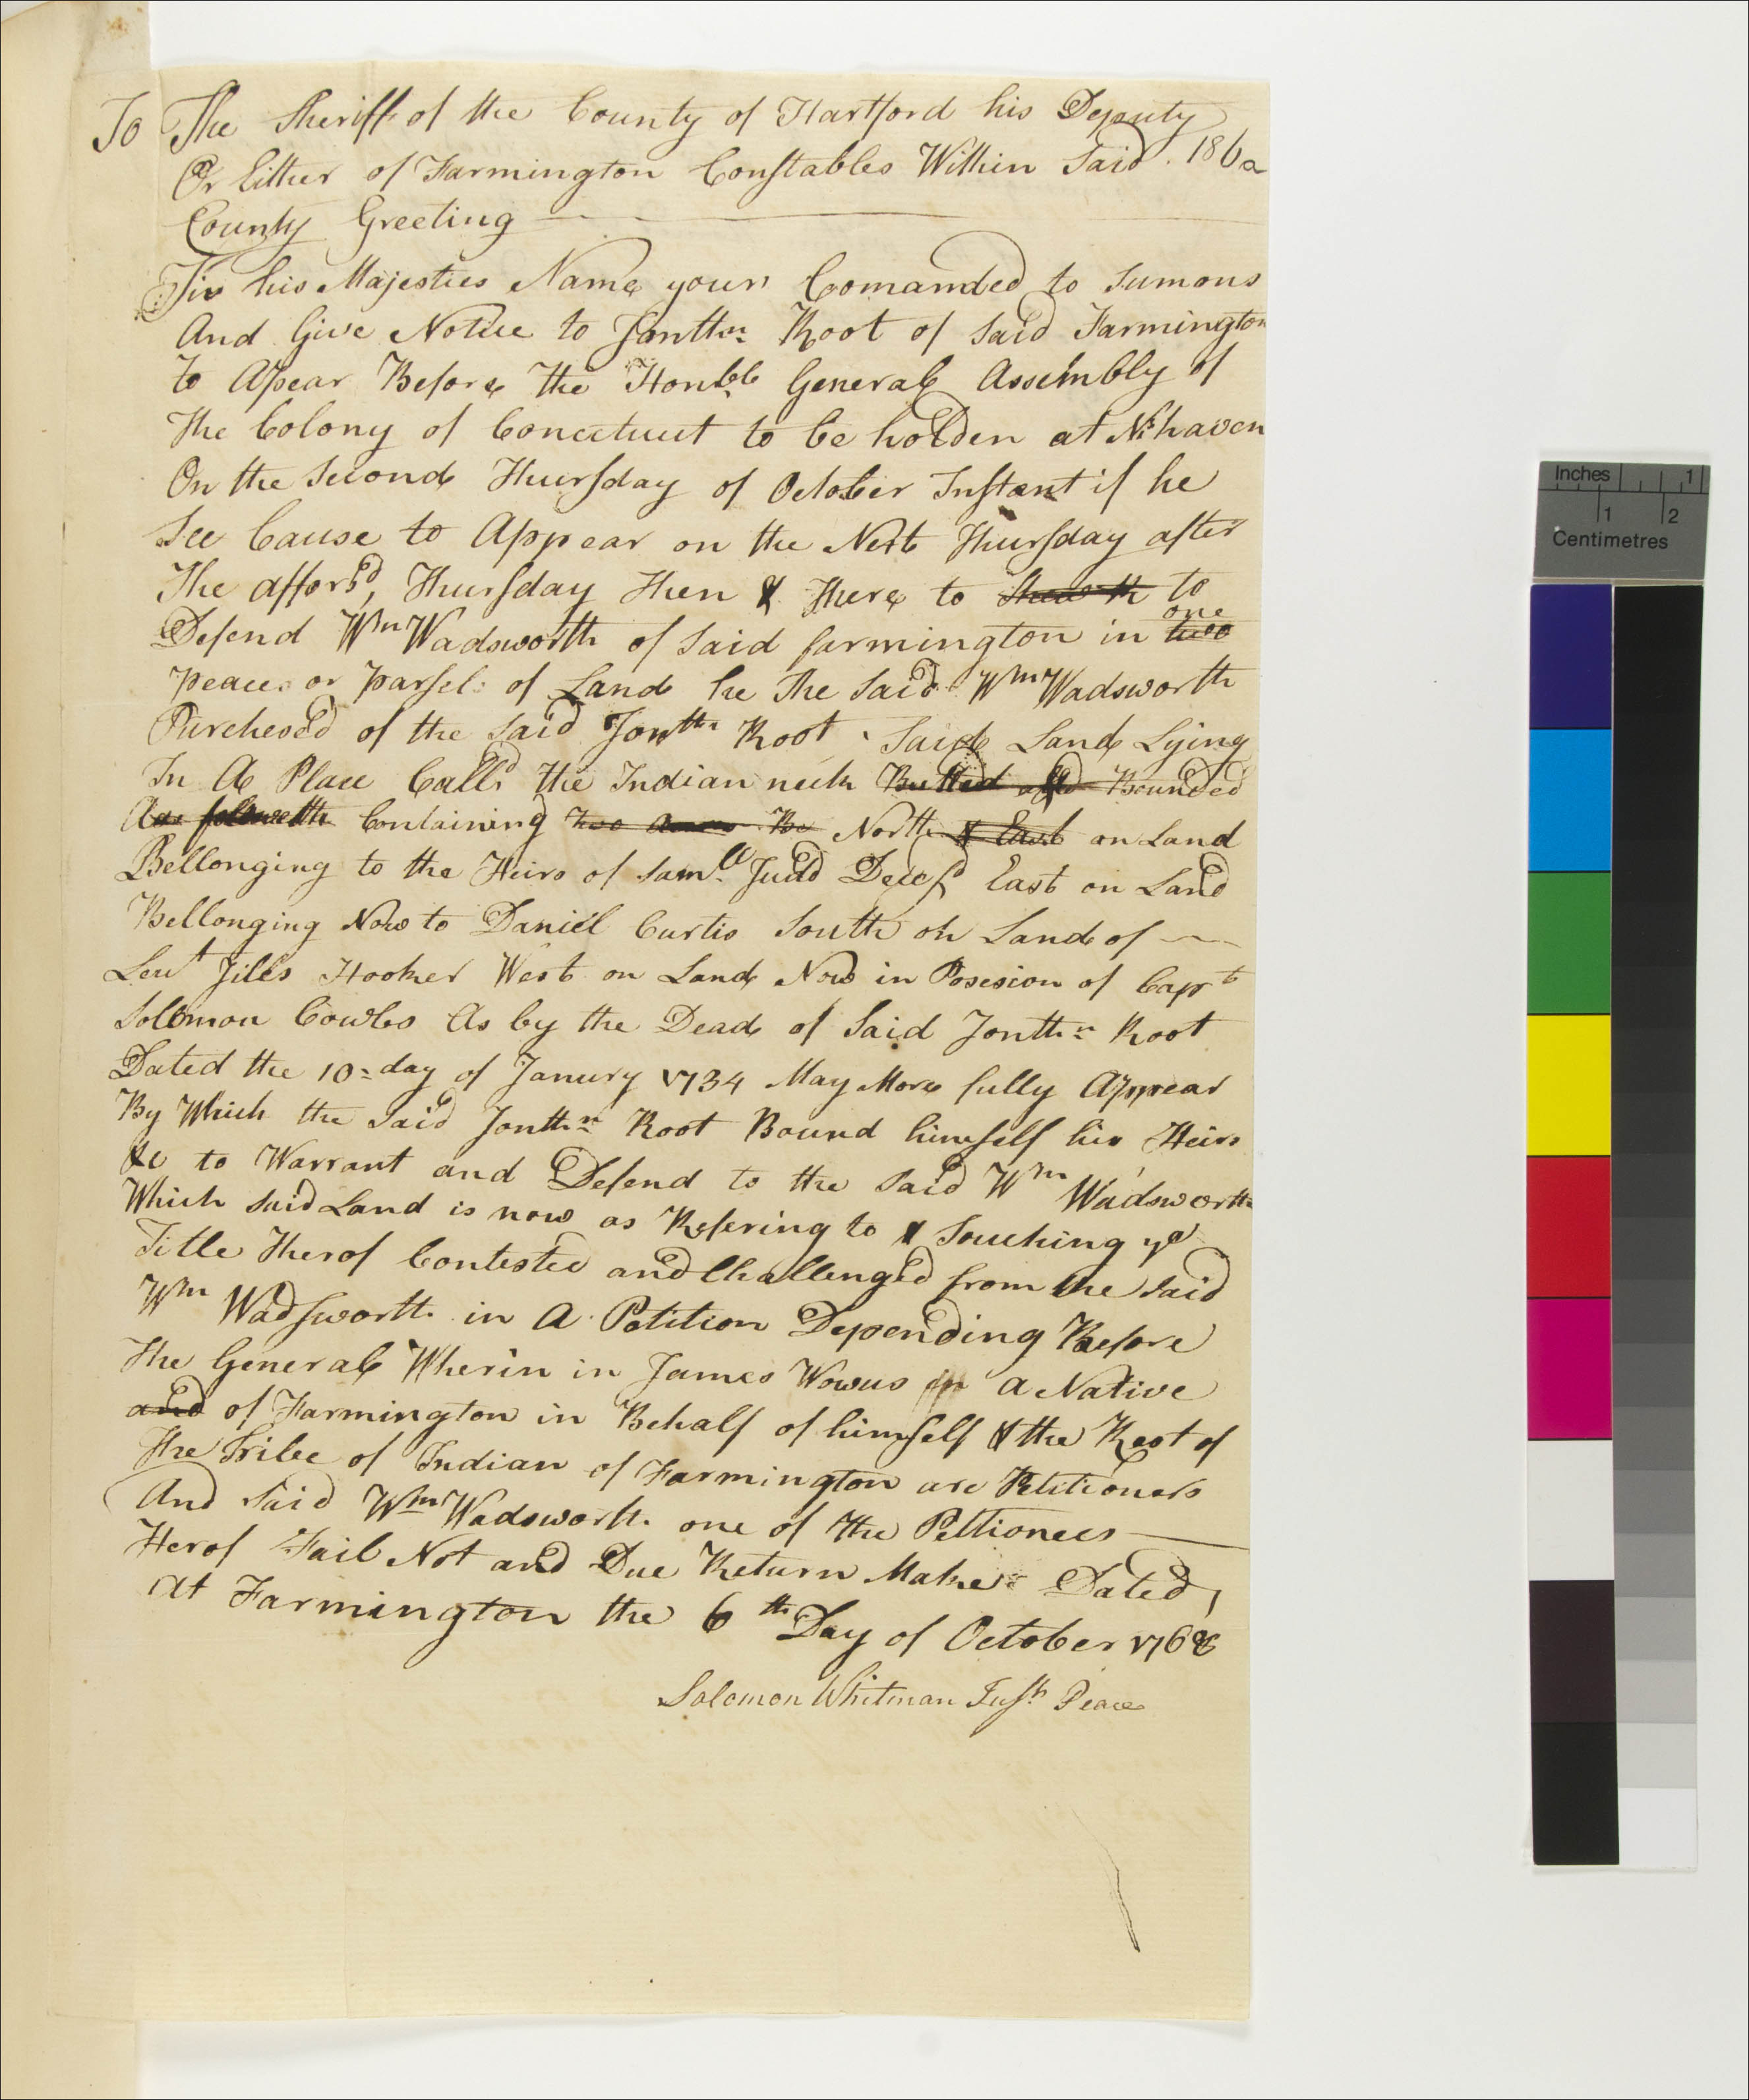 To The Sheriff of the County of Hartford his Deputy
Or Either of Farmington Constables Within Said 186a
County Greeting
In his Majesties Name your Comanded to Sumons
And Give Notice to Jonthn Root of Said Farmington
to Apear Before the Honble General Assembly of
The Colony of Conectucut to be holden at N:haven
On the Second Thursday of October Instant if he
See Cause to Appear on the Next Thursday after
The afforsd, Thursday then & There to to
one
Defend Wm Wadsworth of Said farmington in two
peace or parsel of Land he The Said Wm Wadsworth
Purchesed of the Said Jonthn Root Said Land Lying
In A Place Calld The Indian neck Butted and Bounded
As followeth Containing two acres Be North & East on Land
Bellonging to the Heirs of Samll Judd Decesd East on Land
Bellonging Now to Daniel Curtis South on Land of
Leut Jiles Hooker West on Land Now in Posesion of Capt
Solomon Cowles As by the Deade of Said Jonthn Root
Dated the 10: day of Janury 1734 May More fully Appear
By Which the Said Jonthn Root Bound himself his Heirs
&c to Warrant and Defend to the Said Wm Wadsworth
Which Said Land is now as Refering to & Touching ye
Title Therof Contested and Challenged from the Said
Wm Wadsworth in A Petition Depending Before
The General Wherin in James Wowus a Native
and of Farmington in Behalf of himself & the Rest of
The Tribe of Indian of Farmington are Petitioners
And Said Wm Wadsworth one of the Pettionees
Herof Fail Not and Due Return Make Dated,
At Farmington the 6th Day of October 1768
Solomon Whitman Just Peace
Inches 1
1 2
Centimetres